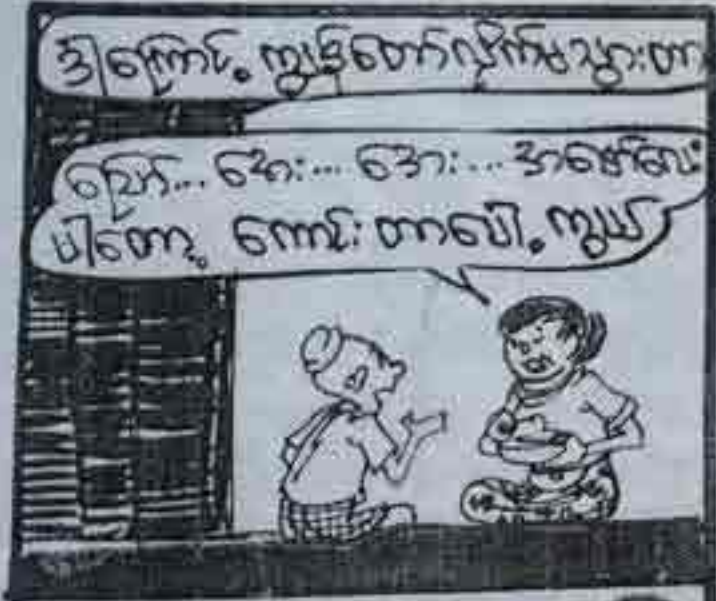 ဒါကြောင့် ကျွန်တော်လိုက်မသွားတာ
ဪ... အေး... အေး...
ပါတော့ ကောင်းတာပေါ့ ကွယ်